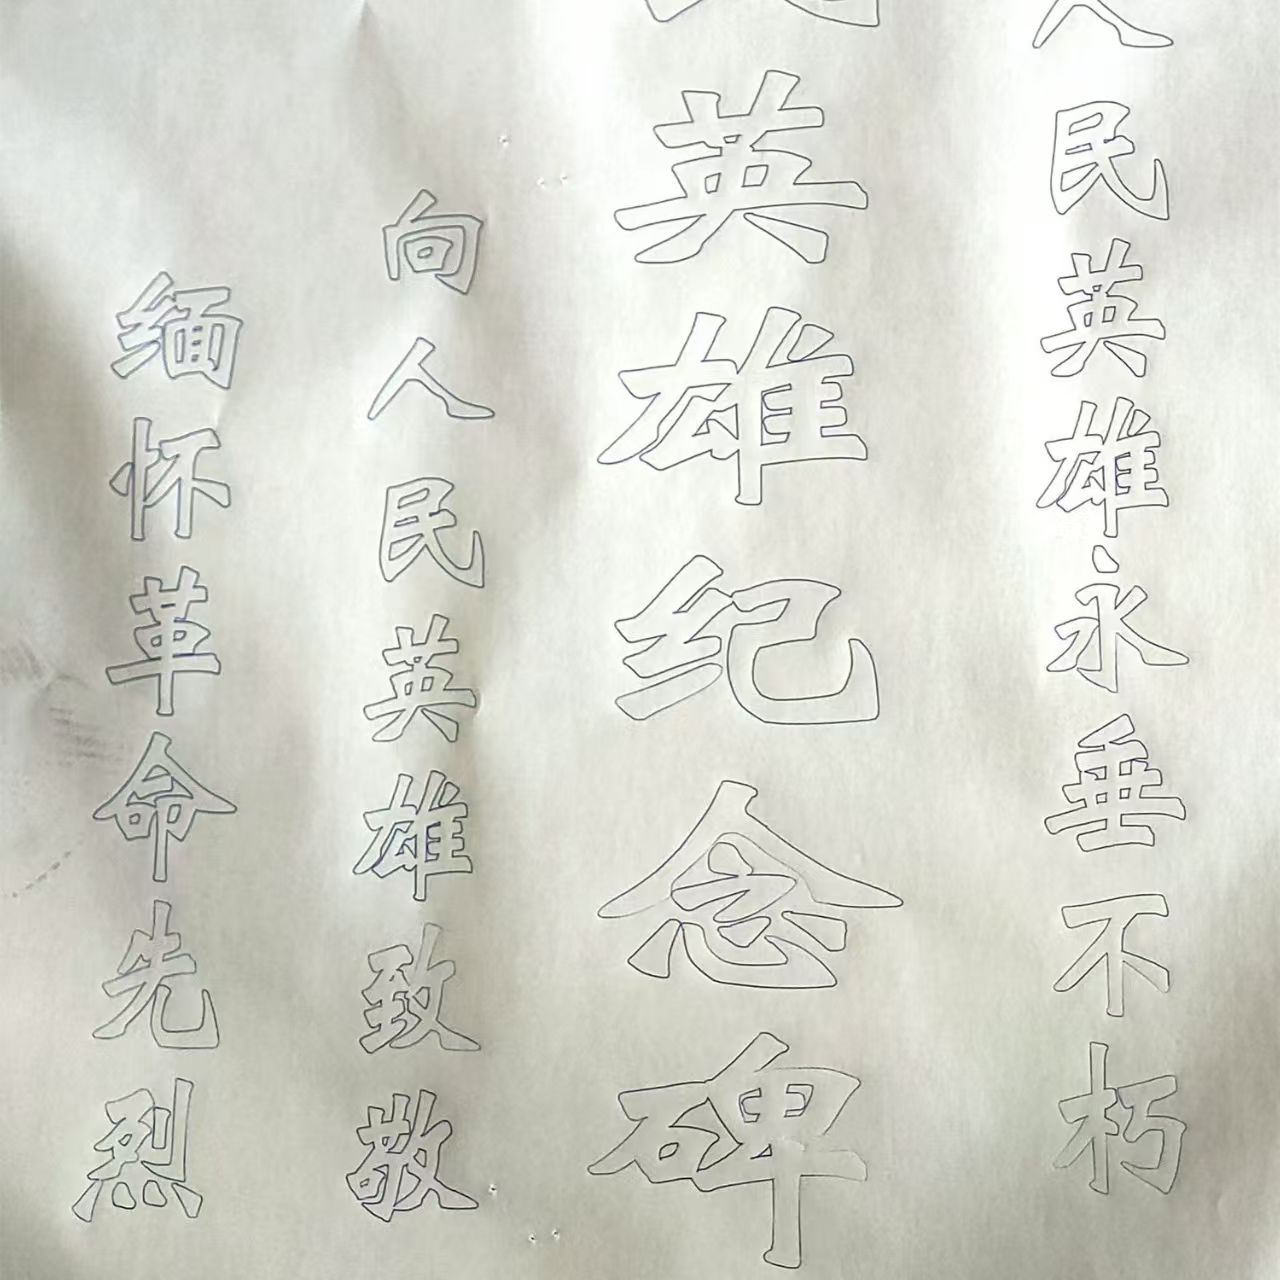 人民英雄永垂不朽
民英雄纪念碑
向人民英雄致敬
缅怀革命先烈